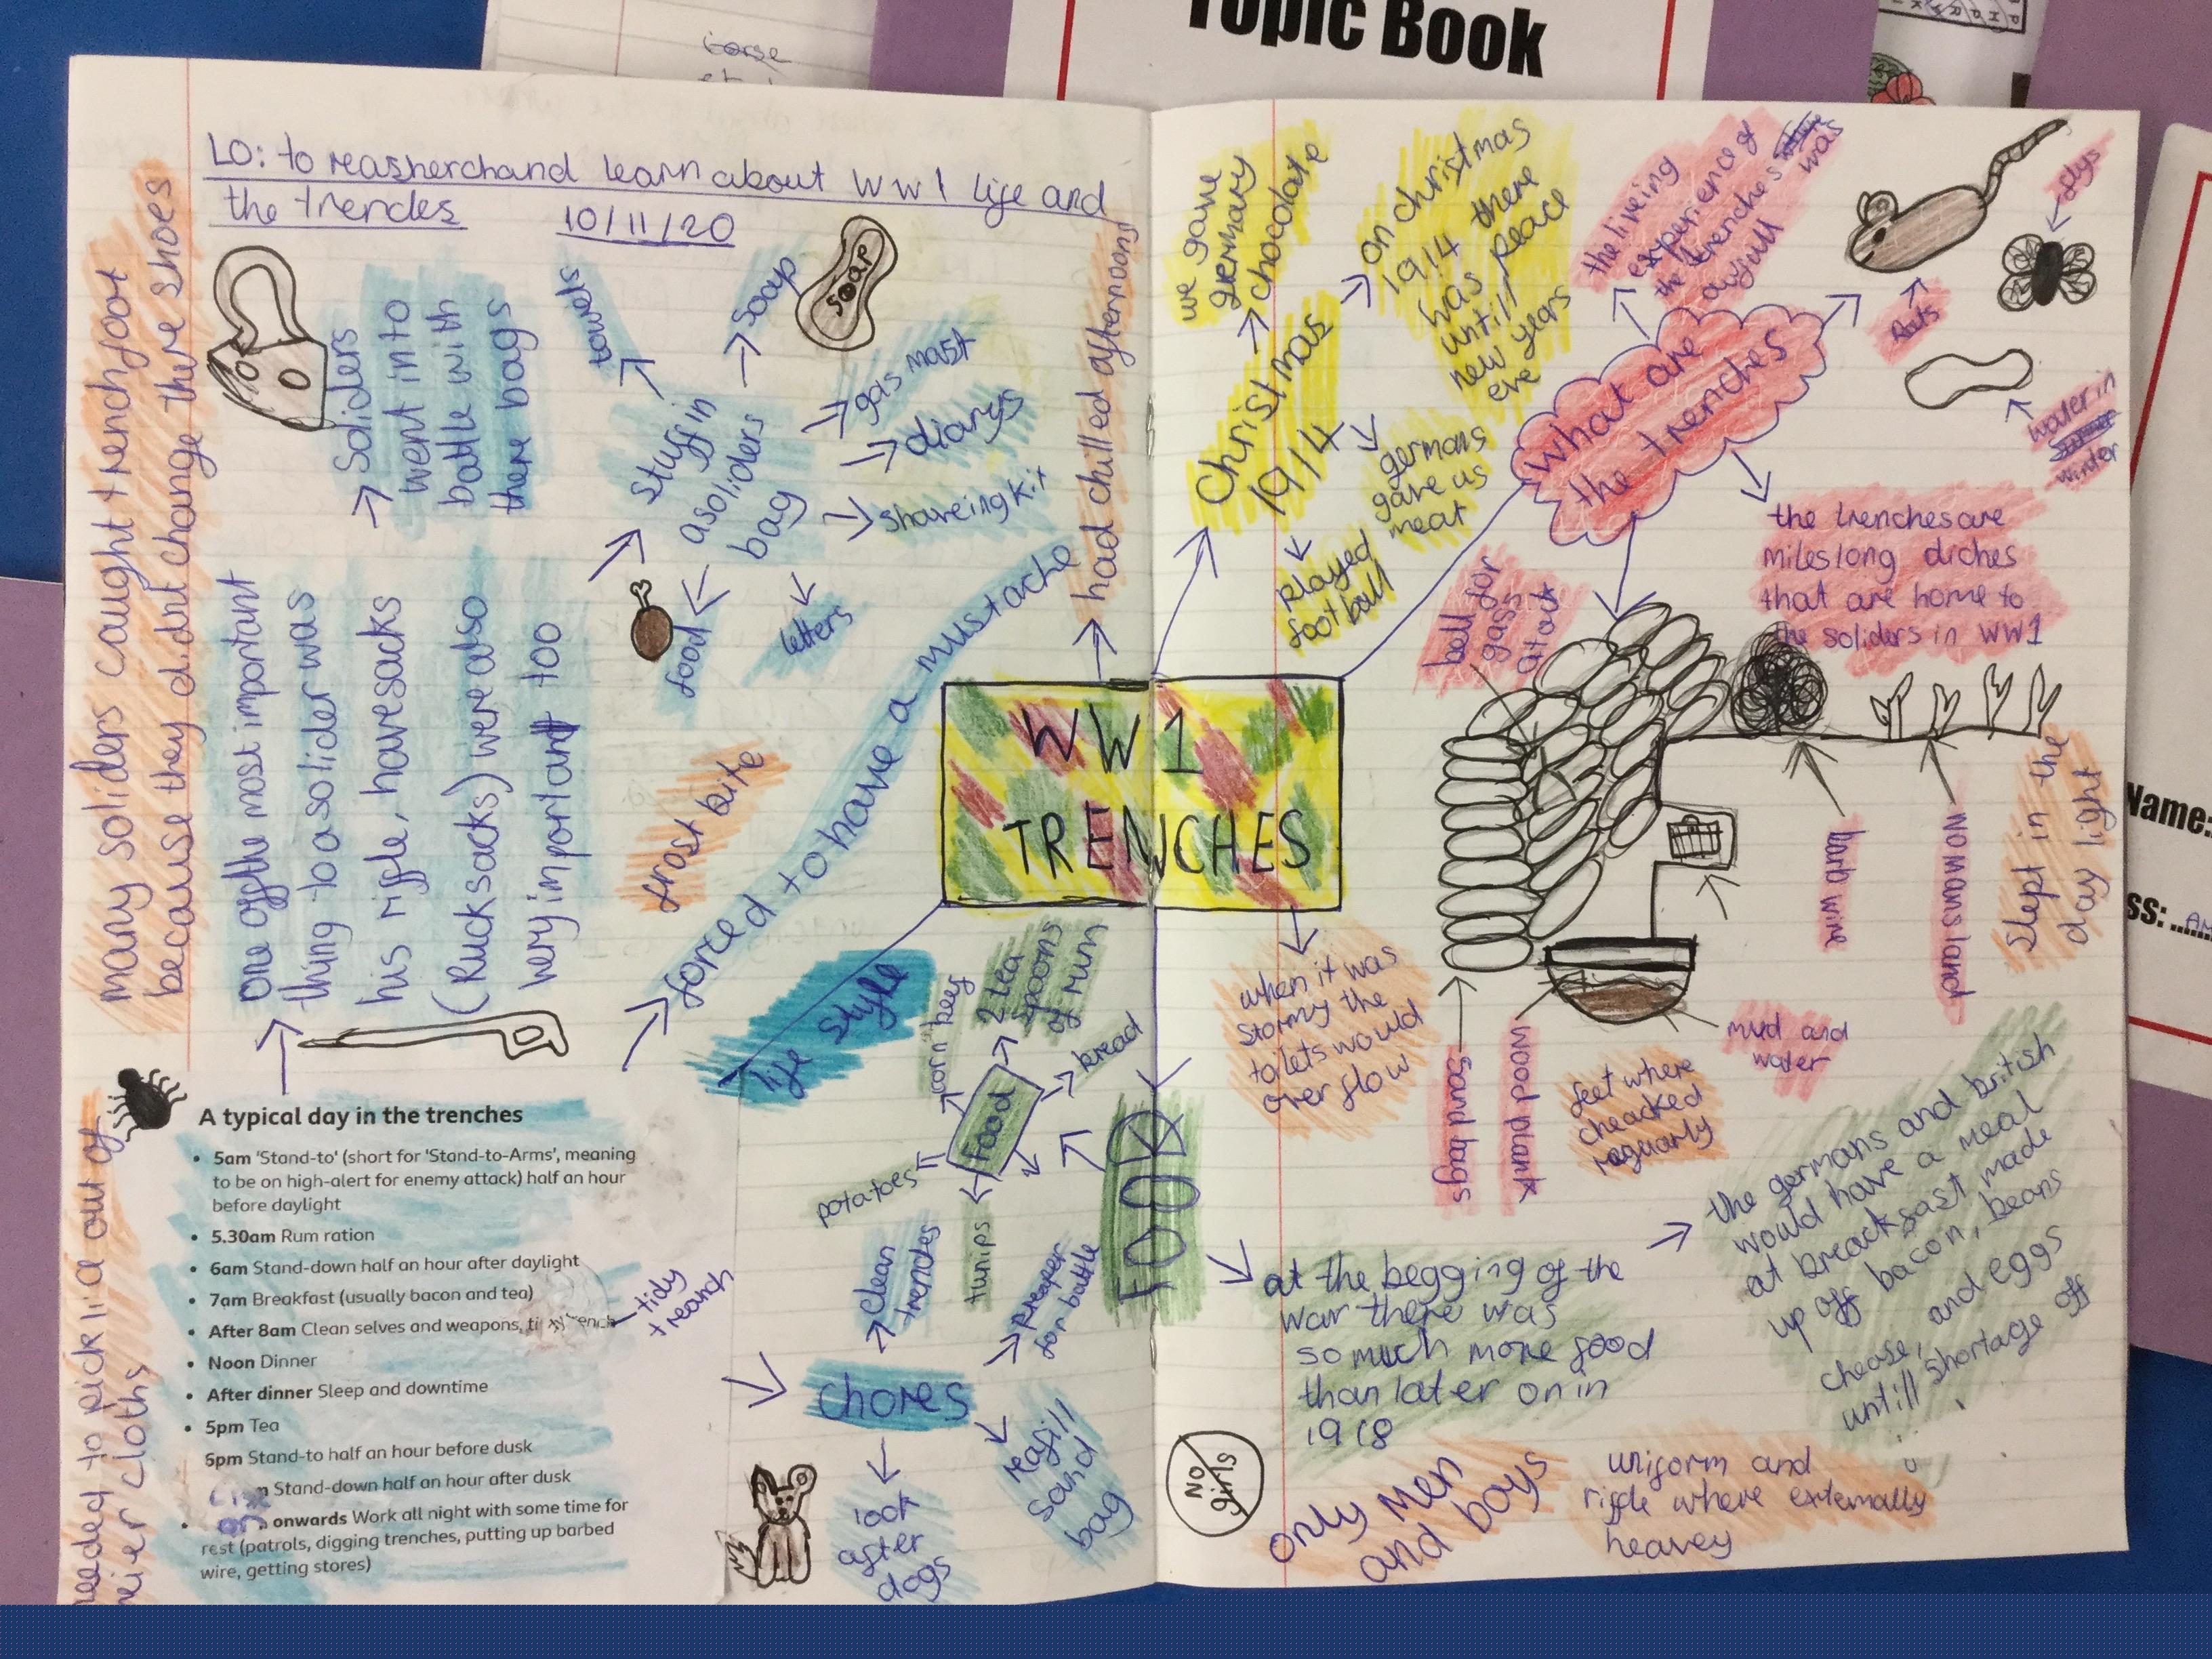 Topic Book
LO: to reasherchand learn about WW1 life and
the trences 10/11/20
many soliders caught trenchfoot
because they didnt change there shoes
Soliders
went into
battle with
there bags
One offthe most important
thing to a solider was
his riffle, haversacks
(Rucksacks) were also
very important too
Stuff in
a soliders
bag
towels
soap
soap
gas mast
diarys
shaveing kit
letters
food
had chilled afternoons
forced to have a mustache
frost bite
life style
WW1
TRENCHES
A typical day in the trenches
• 5am 'Stand-to' (short for 'Stand-to-Arms', meaning
to be on high-alert for enemy attack) half an hour
before daylight
• 5.30am Rum ration
• 6am Stand-down half an hour after daylight
• 7am Breakfast (usually bacon and tea)
• After 8am Clean selves and weapons,
tidy
trench
• Noon Dinner
• After dinner Sleep and downtime
• 5pm Tea
5pm Stand-to half an hour before dusk
Stand-down half an hour after dusk
• onwards Work all night with some time for
rest (patrols, digging trenches, putting up barbed
wire, getting stores)
needed to pick lic out of
their cloths
food
corn beef
2 tea
spoons
of rum
bread
potatoes
tunips
FOOD
chores
clean
trences
preaper
for battle
reafill
sand
bag
look
after
dogs
Christmas
1914
we gave
germany
chocolate
on christmas
1914 there
was peace
untill
new years
eve
germans
gave us
meat
played
football
what are
the trenches
the liveing
experience of
the trenches was
awfull
Rats
flys
water in
winter
the trenches are
miles long diches
that are home to
the soliders in WW1
bell for
gass
atack
barb wire
no mans land
Slept in the
day light
mud and
water
wood plank
sand bags
when it was
stormy the
toilets would
over flow
feet where
cheacked
reguarly
at the begging of the
war there was
so much more food
than later on in
1918
the germans and british
would have a meal
at breackfast made
up off bacon, beans
chease, and eggs
untill shortage off
No
girls
only men
and boys
uniform and
riffle where extemally
heavey
Name: